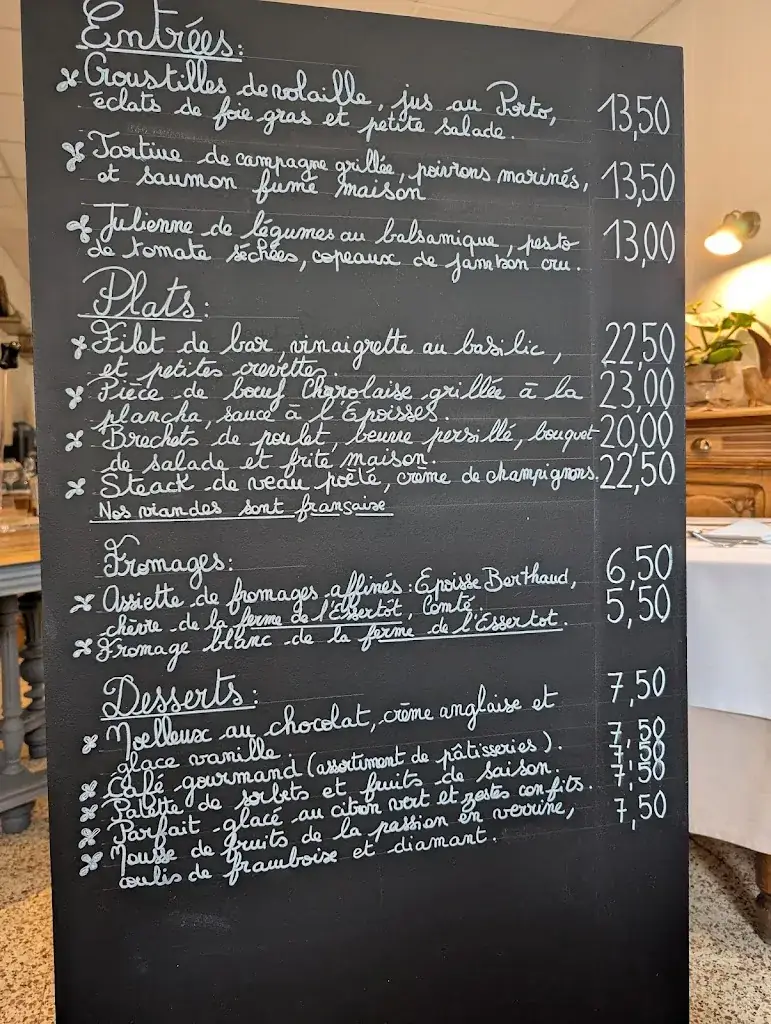 Entrées:
Croustilles de volaille, jus au Porto,
éclats de foie gras et petite salade. 13,50
Tartine de campagne grillée, poivrons marinés,
et saumon fumé maison 13,50
Julienne de légumes au balsamique, pesto
de tomate séchées, copeaux de jambon cru. 13,00
Plats:
Filet de bar, vinaigrette au basilic,
et petites crevettes. 22,50
Pièce de boeuf Charolaise grillée à la
plancha, sauce à l'Epoisses. 23,00
Brechets de poulet, beurre persillé, bouquet
de salade et frite maison. 20,00
Steack de veau poêlé, crème de champignons. 22,50
Nos viandes sont française
Fromages:
Assiette de fromages affinés: Epoisse Berthaud, 6,50
chèvre de la ferme de l'Essertot, Comté.
Fromage blanc de la ferme de l'Essertot. 5,50
Desserts:
Moelleux au chocolat, crème anglaise et 7,50
glace vanille.
Café gourmand (assortiment de pâtisseries). 7,50
Palette de sorbets et fruits de saison. 7,50
Parfait glacé au citron vert et zestes confits. 7,50
Mousse de fruits de la passion en verrine, 7,50
coulis de framboise et diamant.